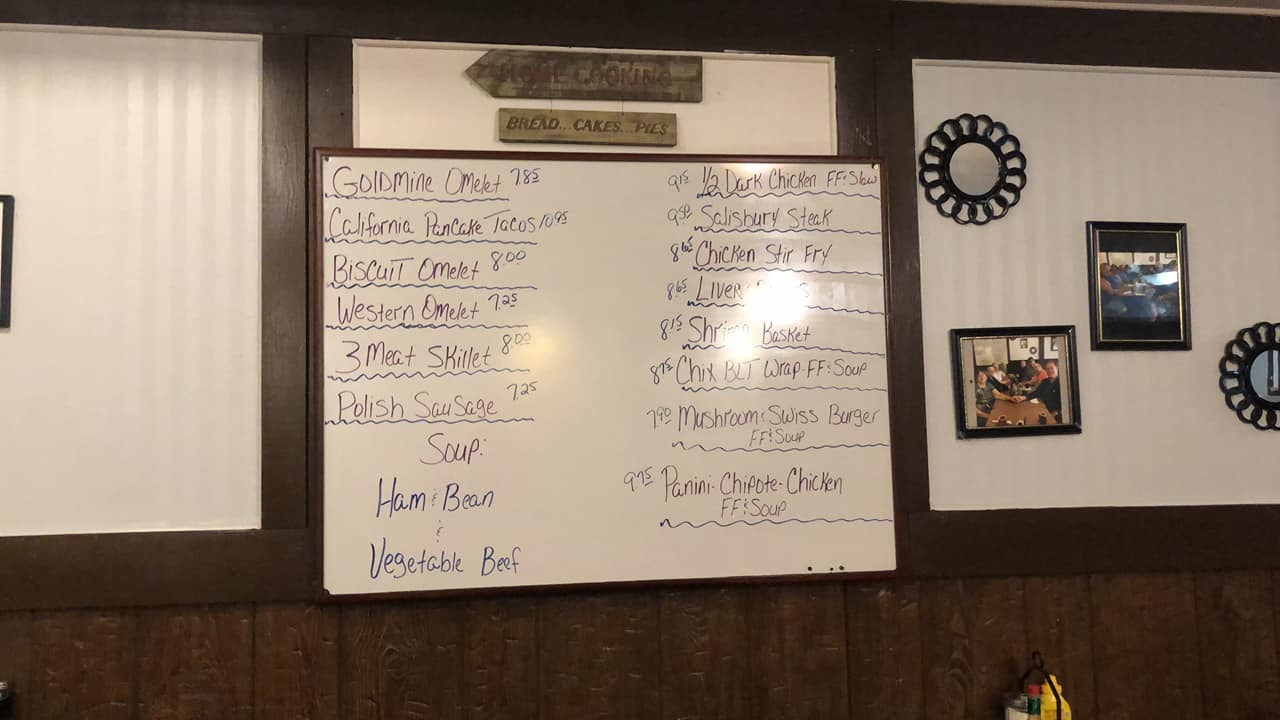 HOME COOKING
BREAD...CAKES...PIES
GOLDMINE OMELET 7.85
California Pancake Tacos 10.95
Biscuit Omelet 8.00
Western Omelet 7.25
3 Meat Skillet 8.00
Polish Sausage 7.25
Soup:
Ham & Bean
&
Vegetable Beef
9.15 1/2 Dark Chicken FF & Slaw
Salisbury Steak
Chicken Stir Fry
8.65 Liver
8.15 Shrimp Basket
8.75 Chix BLT Wrap-FF & Soup
7.90 Mushroom & Swiss Burger
FF & Soup
9.75 Panini-Chipote-Chicken
FF & Soup